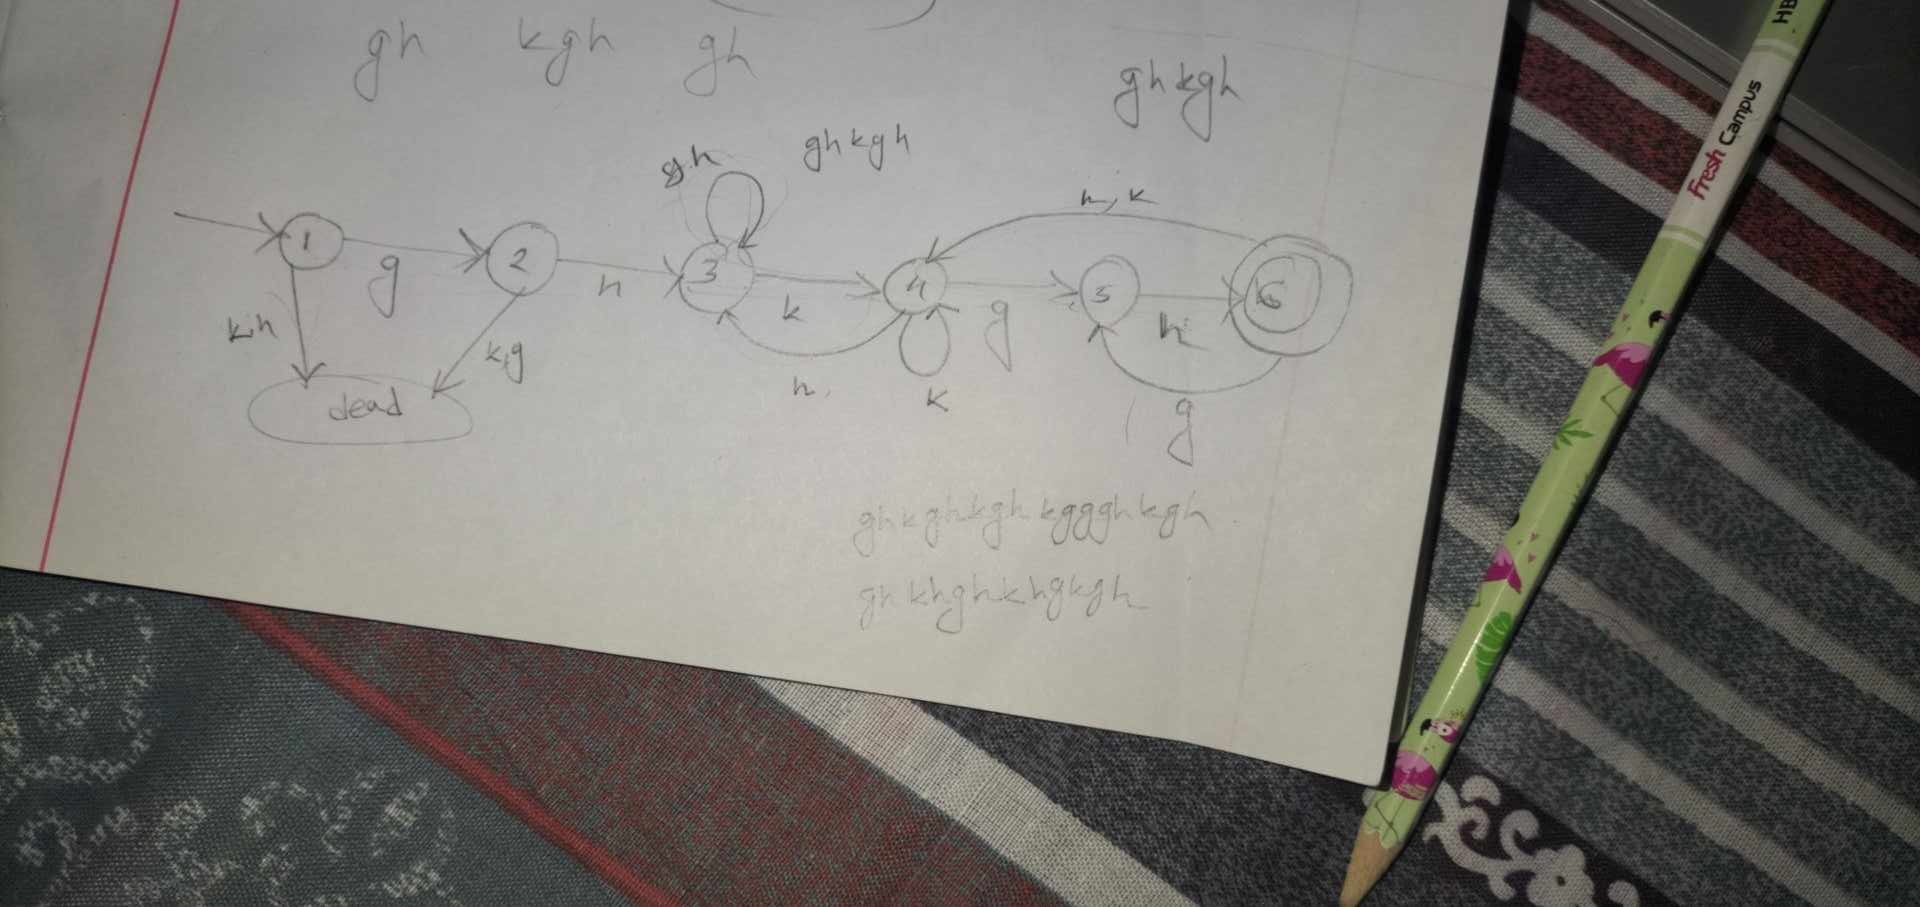 gh kgh gh
ghkgh
g,h ghkgh
h, k
1 g 2 h 3 k 4 g 5 h 6
k,h k,g h, k g
dead
ghkghkghkggghkgh
ghkhghkhgkgh
Fresh Campus HB